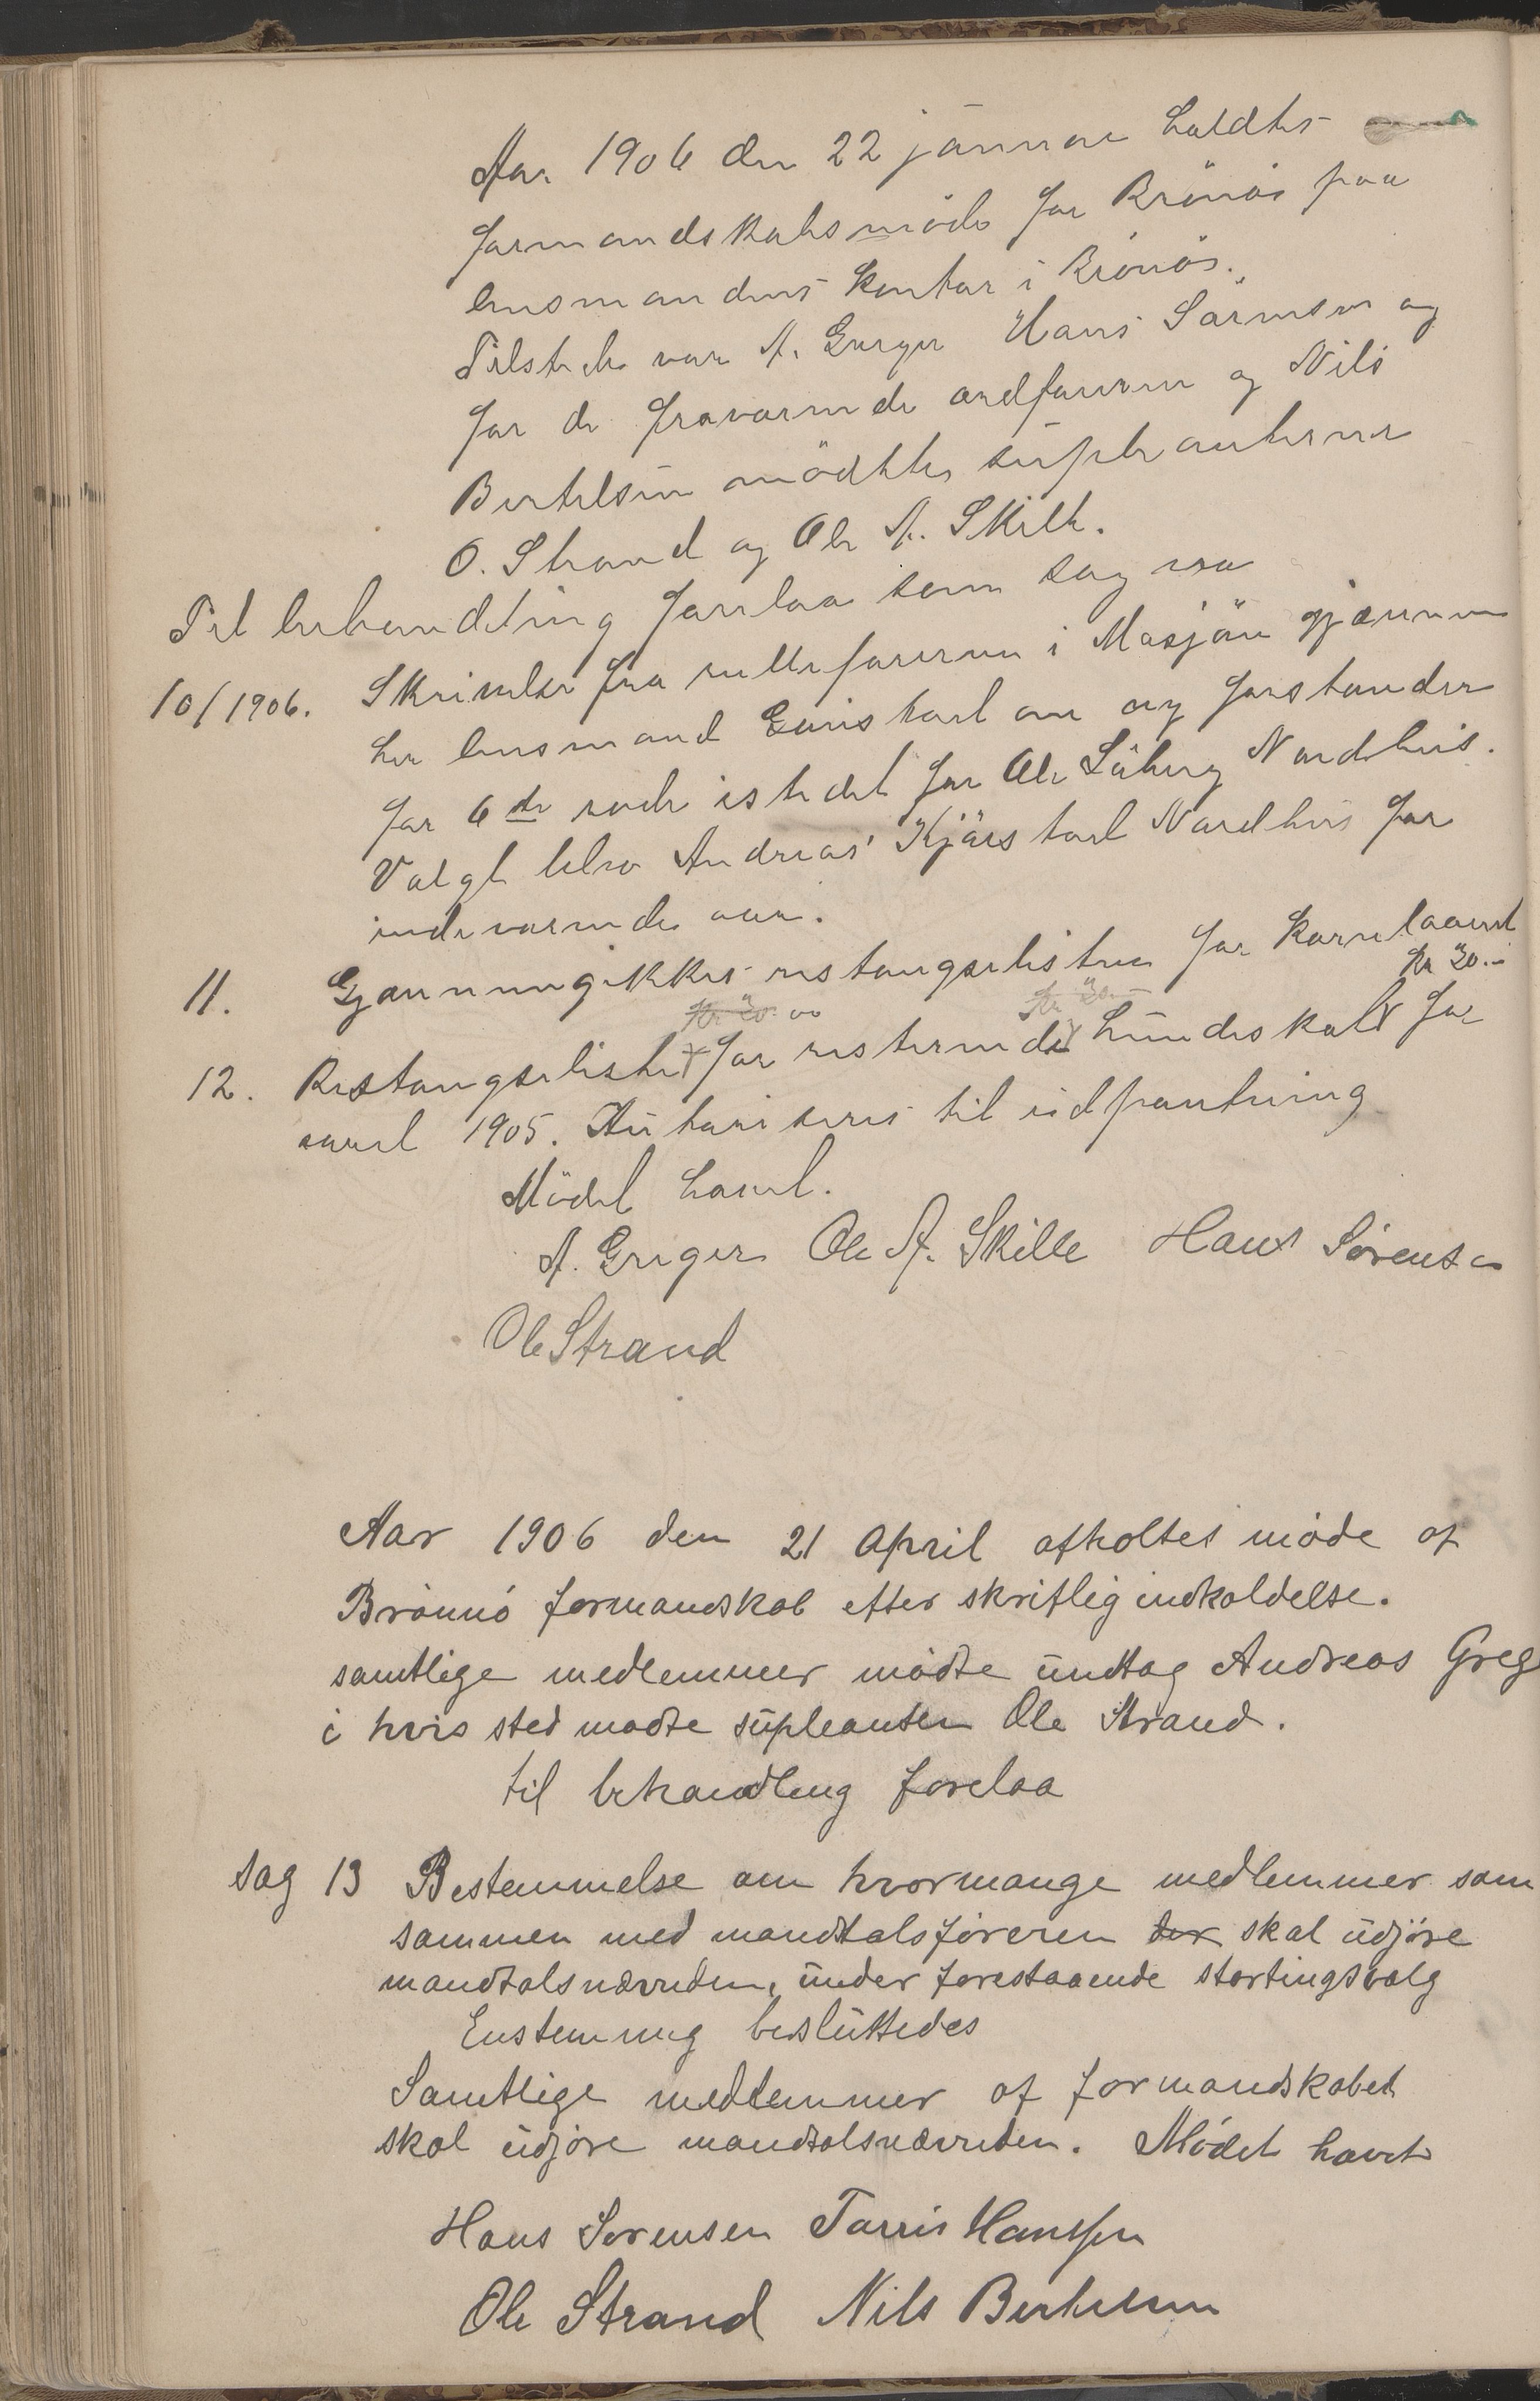 Aar 1906 den 22 januar holdtes
formandskabsmöde for Brönös paa
lensmandens kontor i Brönös.
Tilstede var A. Greger Hans Sörensen og
for de fraværende ordføreren og Nils
Bertelsen mödtes supleanterne
O. Strand og Ole A. Skille.
Til behandling forelaa som sag
10/1906. Skrivelse fra rulleføreren i Mosjøen gjennem
her lensmand om ny forstander
for 6te rode istedet for Ole Nordhus.
Valgt blev Andreas Nordhus for
indeværende aar.
11. Gjennemgikkes restangselisten for kornlaanet
kr 30.-
kr 20.00 kr 30.-
12. Restangseliste for resterende hundeskat for
aaret 1905. Autoriseres til udpantning
Mödet hævet.
A. Greger Ole A. Skille Hans Sørensen
Ole Strand
Aar 1906 den 21 April afholtes møde af
Brönnö formandskab efter skriftlig indkaldelse.
samtlige medlemmer mødte undtag Andreas Greg
i hvis sted mødte supleanten Ole Strand.
til behandling forelaa
Sag 13 Bestemmelse om hvormange medlemmer som
sammen med mandtalsføreren der skal udgjøre
mandtalsnævnden, under forestaaende stortingsvalg
Enstemmig besluttedes
Samtlige medlemmer af formandskabet
skal udgjøre mandtalsnævnden. Mødet hævet
Hans Sørensen Torris Hansen
Ole Strand Nils Bertelsen